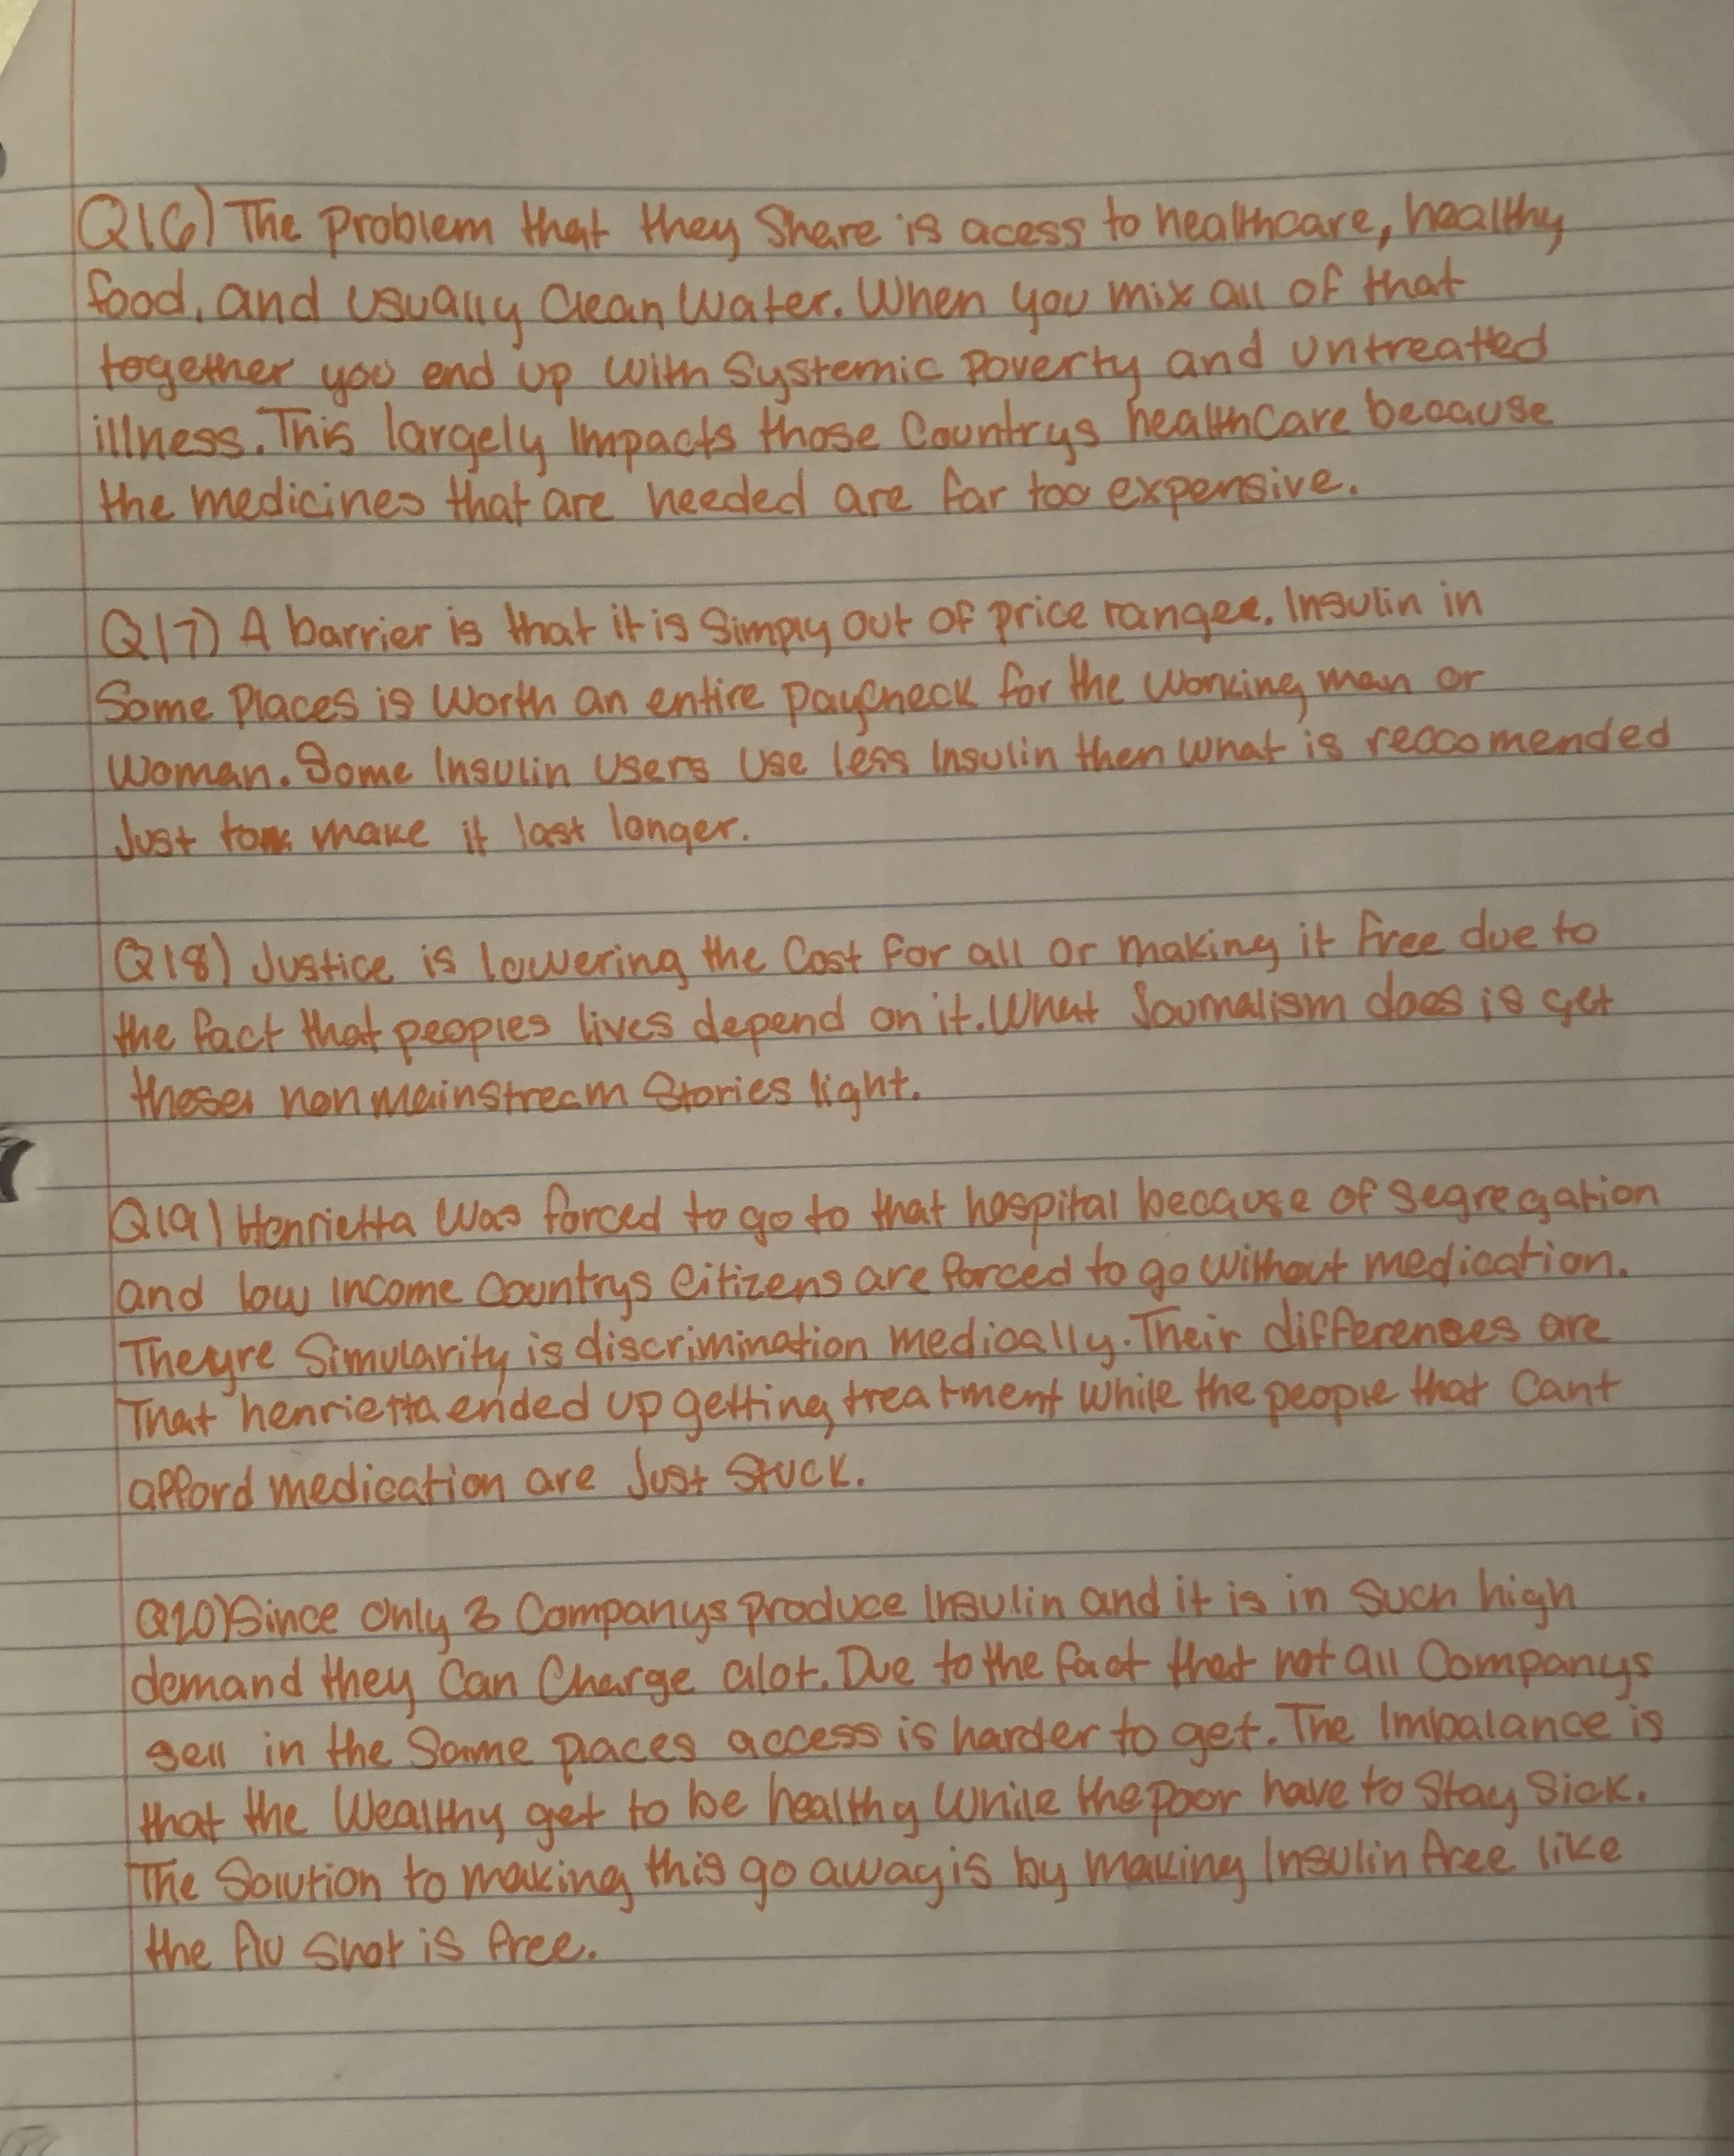 Q16) The Problem that they Share is acess to healthcare, healthy
food, and usually Clean Water. When you mix all of that
together you end up With Systemic Poverty and untreatted
illness. This largely Impacts those Countrys healthCare because
the medicines that are needed are far too expensive.
Q17) A barrier is that it is Simply out of price range. Insulin in
Some Places is Worth an entire paycheck for the working man or
Woman. Some Insulin Users Use less Insulin then what is reccomended
Just to make it last longer.
Q18) Justice is lowering the Cost for all or making it free due to
the fact that peoples lives depend on it. What Journalism does is get
these non mainstream Stories light.
Q19) Henrietta Was forced to go to that hospital because of segregation
and low income Countrys Citizens are forced to go without medication.
Theyre Simularity is discrimination medically. Their differences are
That henrietta ended up getting treatment while the people that Cant
afford medication are Just Stuck.
Q20) Since only 3 Companys produce Insulin and it is in such high
demand they Can Charge alot. Due to the fact that not all Companys
sell in the Same places access is harder to get. The Imbalance is
that the Wealthy get to be healthy While the poor have to Stay Sick.
The Solution to making this go away is by making Insulin free like
the flu Shot is free.